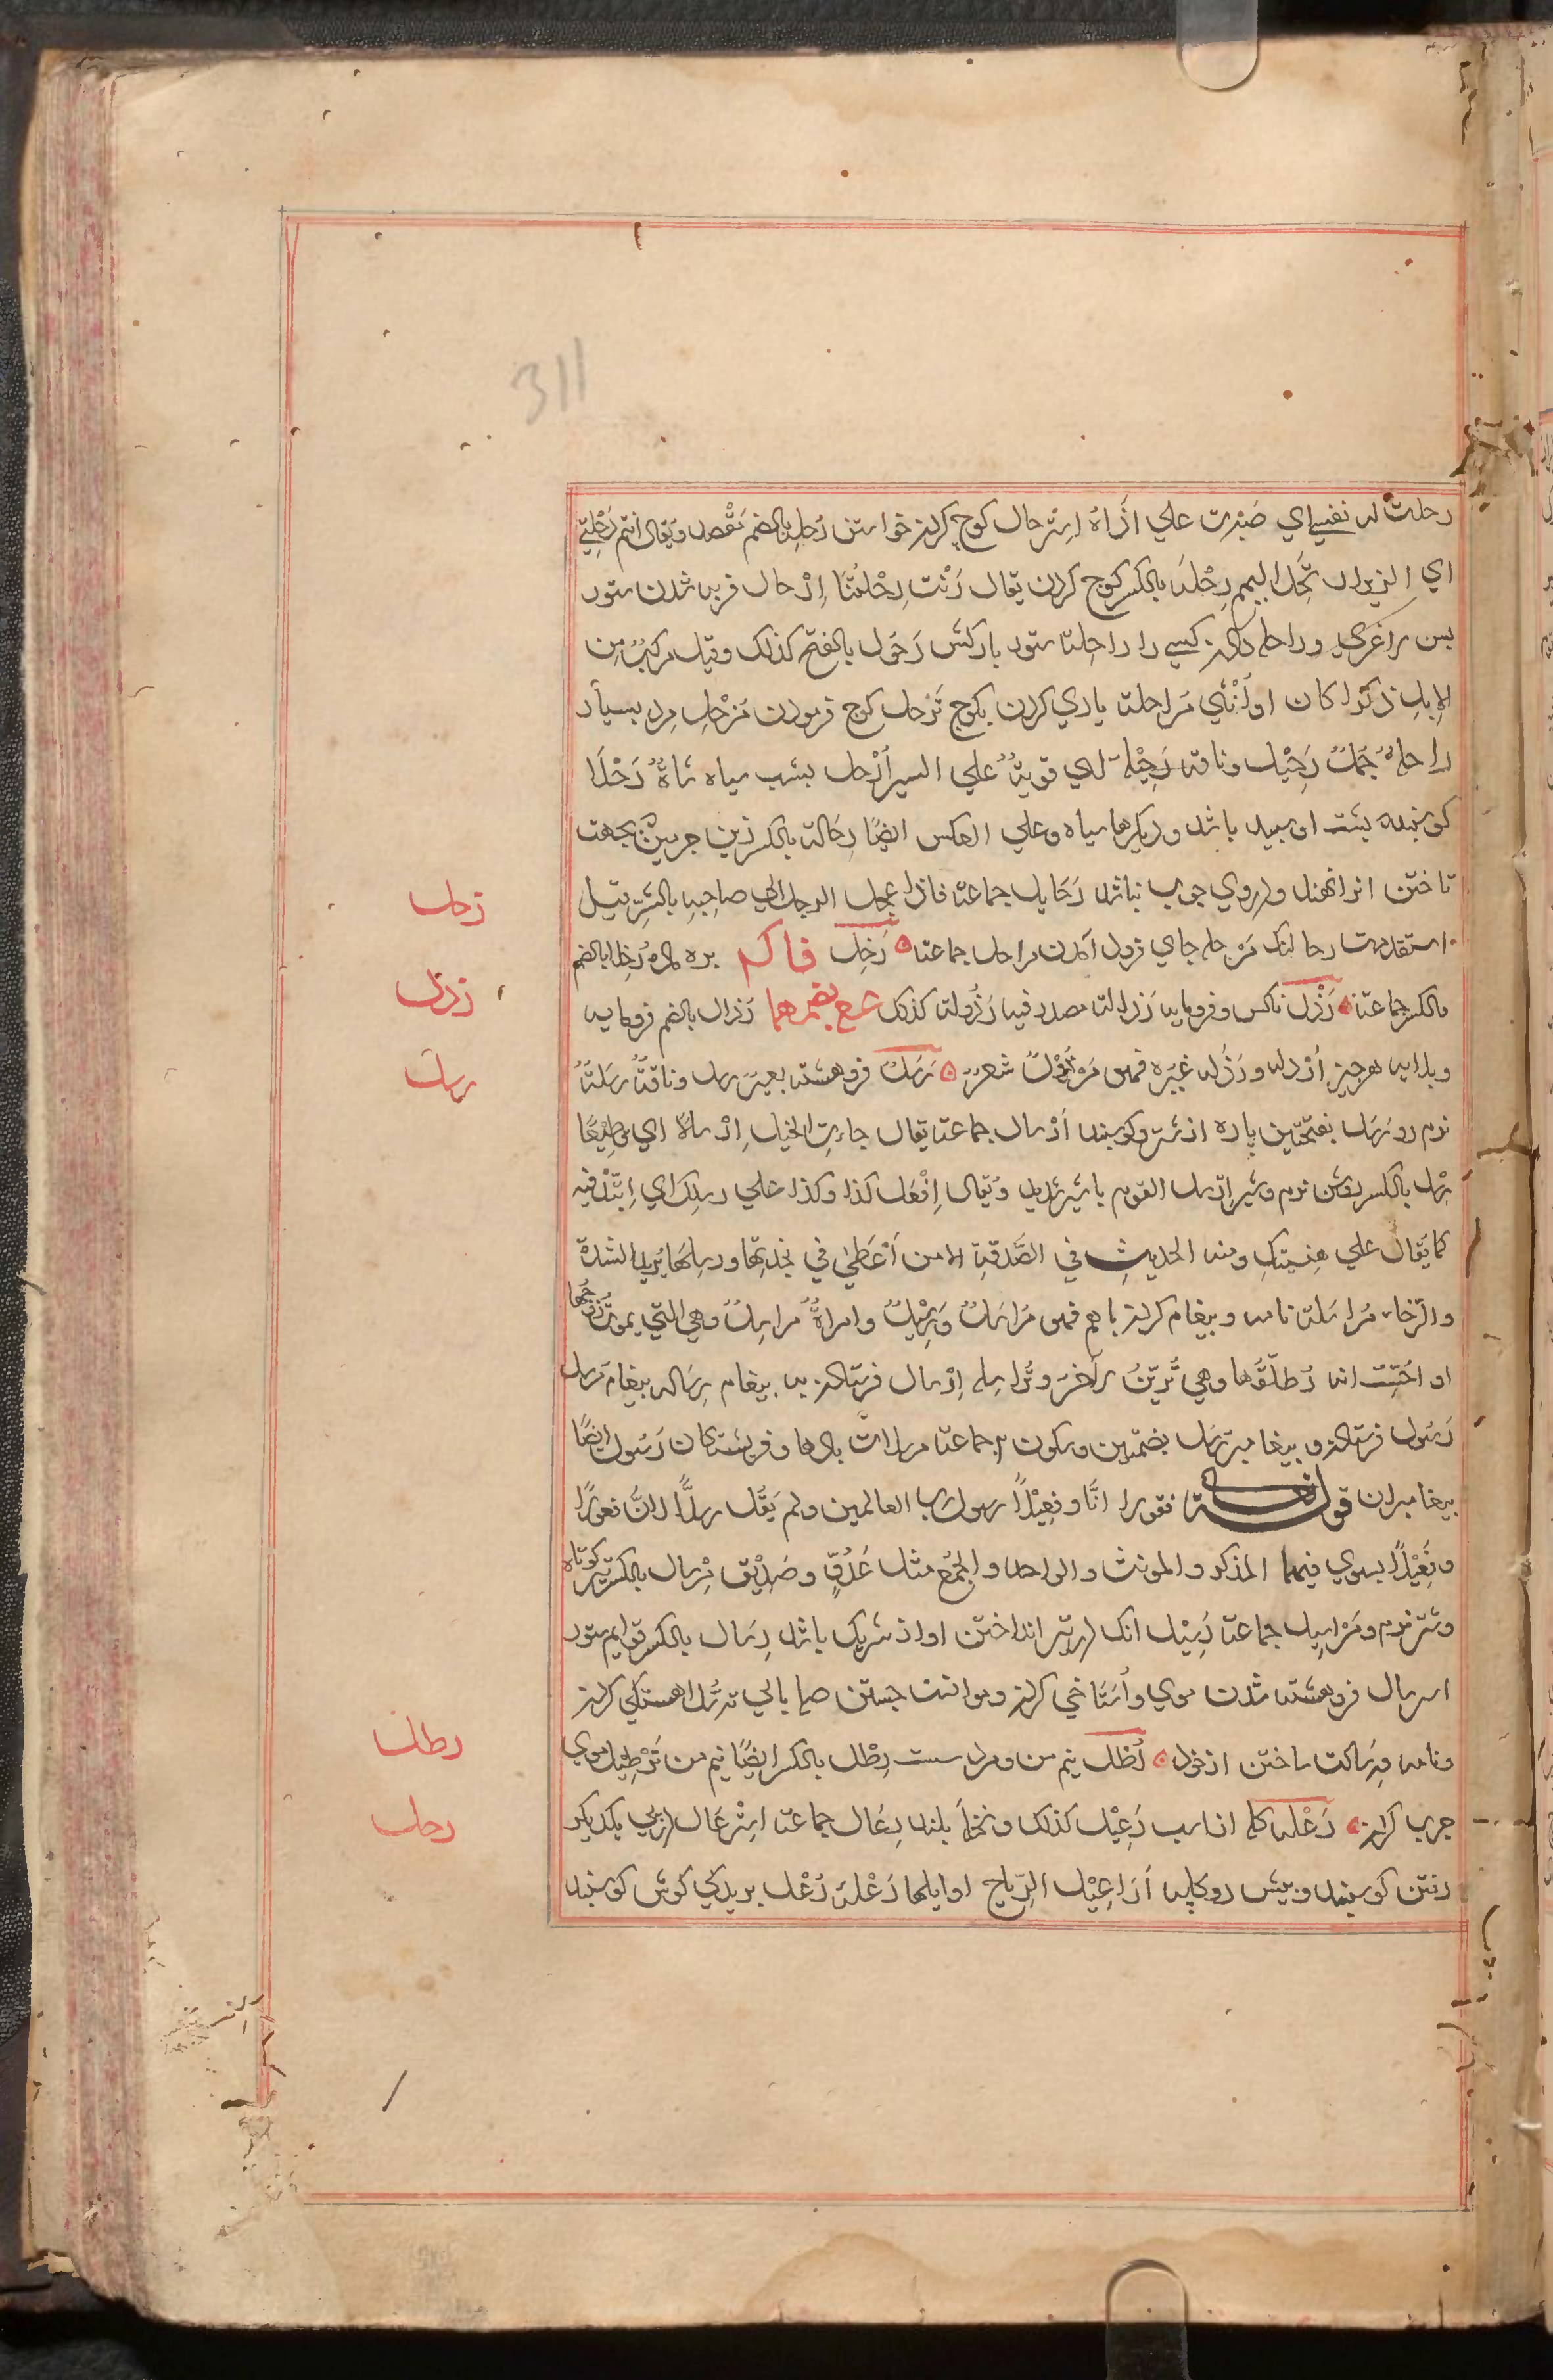 311
رحلت له نفسي اي صَبَرت علي اذاه اِسترحال كوچ كردن خواستن رُحله بالضم مقصد و يقال انتم رُحلتي
اي الذين ارتحل اليهم رِحْلَه بالكسر كوچ كردن يقال دَنَت رِحْلَتُنا اِرْحال قريب شدن ستور
بس براغري و راحله دادن كسي را راحِلة ستور باركش رَحُول بالفتح كذلك وقيل مركب من
الابِل ذكرا كان او اُنثي مُراحلة ياري كردن بكوچ تَرحيل كوچ فرمودن مُرْحِل مرد بسيار
راحلة جَمَلٌ رَحِيْل و ناقه رَحِيْلة اي قوية علي السير اَرْحل بشب سياه شاةٌ رَحْلَا
كوسپند كه پشت او سپيد باشد و ديكرها سياه و علي العكس ايضًا رِحَالة بالكسر زين چرمين بجهت
تاختن اندر نهند و در وي چوب نباشد رَحَايِل جماعة فاذا عجل الرجل الي صاحبه بالشر قيل
استقدمت رحالتك مَرْحله جاي فرود آمدن مراحل جماعة رَخِل فا ك بره ماده رُخال بالضم
والكسر جماعة رَذْل ناكس و فرومايه رَذالة مصدر فيه رَذُولة كذلك ع بضمهما رُذال بالضم فرومايه
و بدترين هرچيز اُرْذِل و رَذَله غيره فهو مَرْذُوْلٌ شعر رَسْلٌ فروهشته بعير رسل و ناقة رَسْلَةٌ
نرم رو رَسَل بفتحتين پاره از شتر و كوسپند اَرْسال جماعة يقال جاءت الخيل اِرْسالا اي قطيعًا
رِسْل بالكسر روش نرم و شير اِرْسل القوم با شير شديد و يقال اِفْعَل كذا و كذا علي رسلك اي اِتَّئد فيه
كما يُقال علي هِينتِك و منه الحديث في الصَّدَقة الا من اَعْطي في نجدتها و رسلها يريد الشدة
والرّخاء مُراسَلة نامه و پيغام كردن با هم فهو مُراسَلٌ و رَسِيْلٌ و امراةٌ مراسِلٌ و هي التي يموت زوجُها
او احَسَّتْ انه يُطلّقها و هي تُزيّنُ لآخر و تُراسِله اِرْسال فرستادن به پيغام رِساله پيغام رُسُل
رَسُول فرستاده و پيغامبر رُسُل بضمتين و سكون ٢ جماعة مرسلات بادها و فريشتكان رَسُول ايضًا
پيغامبران قوله تعالى فقولا انَّا رسول رب العالمين و لم يَقُل رسلًا لانَّ فعولًا
و فَعِيْلًا يستوي فيهما المذكر و المونث و الواحد و الجمْع مثل عَدُوٍّ و صَدِيْق مِرْسال بالكسر تير كوتاه
و شتر نرم و مَراسِيل جماعة رَسِيْل انك در تير انداختن و اواز شريك باشد رِسال بالكسر قوايم ستور
استرسال فروهشته شدن موي و اُستاخي كردن و موانست جستن صله بالي ترسُّل اهستكي كردن
و نامه و رسالت ساختن از خود رَطل نيم من و مرد سست رِطْل بالكسر ايضًا نيم من تَرْطِيل موي
چرب كردن رَعْله كله از اسب رَعِيْل كذلك و نخل بلند رِعَال جماعة اِسْترعَال در پي يكديكر
رفتن كوسپند و پيش رو كله اَرَاعِيْل الرّياح اوايلها رَعْلَة رَعْل بريدكي كوش كوسپند
رحل
رذل
رسل
رطل
رعل